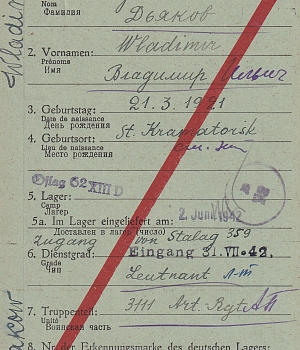 Nom
Фамилия
Дьяков
2. Vornamen: Wladimir
Prénoms
Имя
Владимир Ильич
3. Geburtstag: 21.3.1921
Date de naissance
День рождения
4. Geburtsort: St. Kramatorsk
Lieu de naissance
Место рождения
Oflag 62 XIII D
5. Lager:
Camp
Лагерь
5a. Im Lager eingeliefert am: 2. Juni 1942
Доставлен в лагерь (число)
Zugang von Stalag 359
6. Dienstgrad: Eingang 31.VII.42.
Grade
Чин
Leutnant
7. Truppenteil: 3111 Art. Rgt.
Unité
Воинская часть
8. Nr. der Erkennungsmarke des deutschen Lagers: